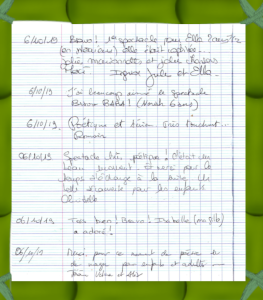 6/10/19 Bravo ! 1er spectacle pour Ella 2 ans 1/2
(en Normandie) elle était captivée.
Jolies marionnettes et jolie chanson
Merci Julie et Ella.
6/10/19 J'ai beaucoup aimé le spectacle
Bravo BABA ! (Norah 6 ans)
6/10/19. Poétique et aérien très touchant...
06/10/19 Spectacle très poétique ! C'était un
beau moment et merci pour le
temps d'échange à la suite. Une
belle découverte pour les enfants
06/10/19 Très bien ! Bravo ! Isabelle (ma fille)
a adoré !
06/10/19 Merci pour ce moment de poésie et
de magie pour enfants et adultes